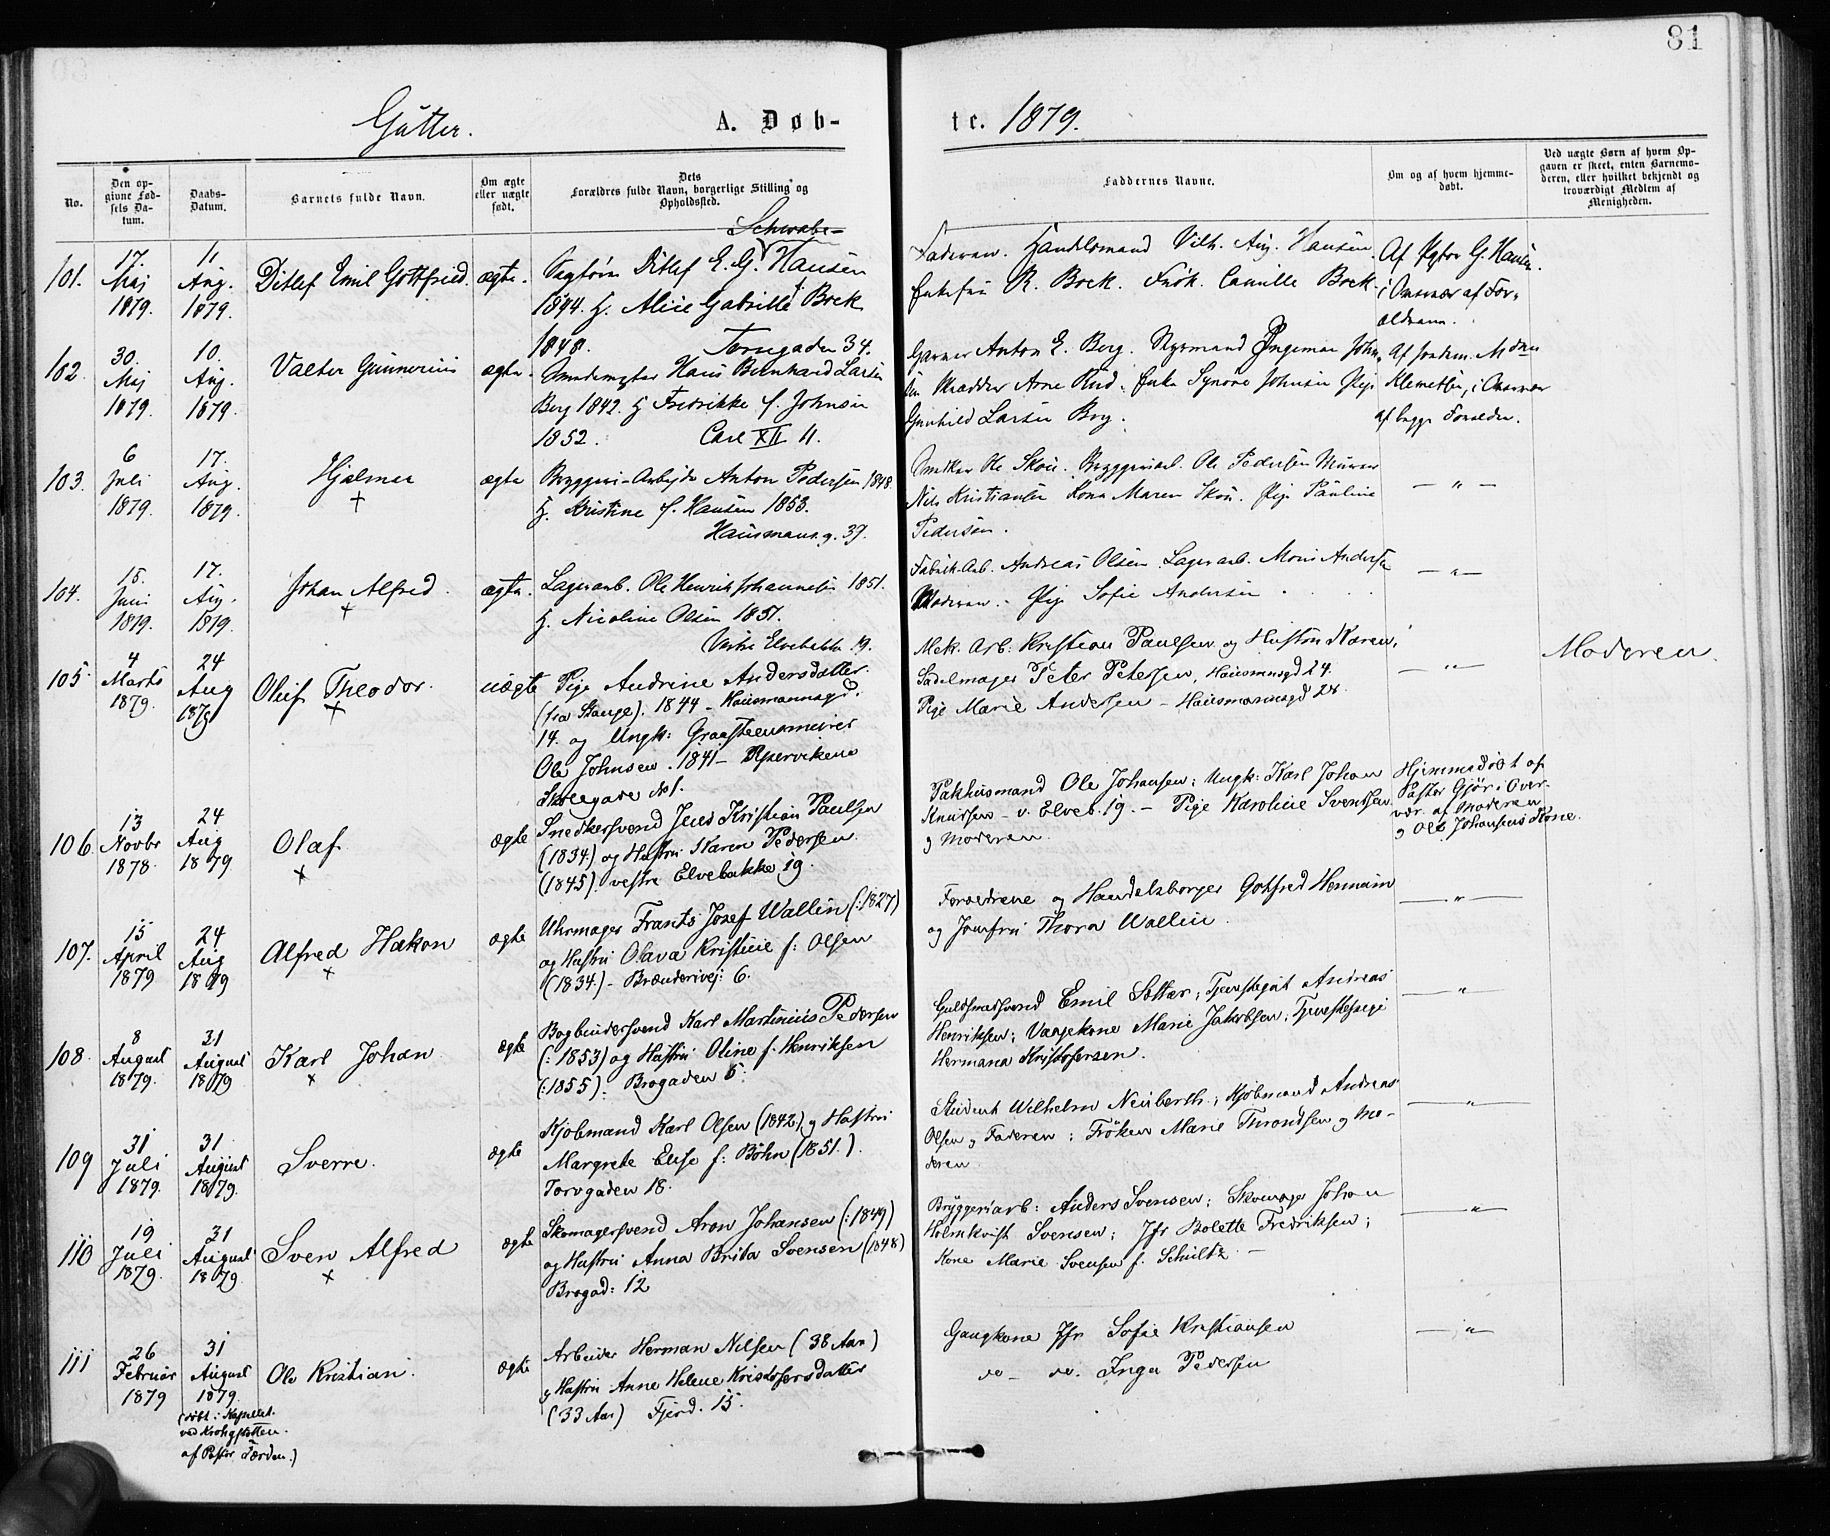 81
Gutter. A. Døb- te. 1879.
No.
Den op-
givne Fød-
sels Da-
tum.
Daabs-
Datum.
Barnets fulde Navn.
Om ægte
eller uægte
født.
Dets
Forældres fulde Navn, borgerlige Stilling og
Opholdssted.
Faddernes Navne.
Om og af hvem hjemme-
døbt.
Ved uægte Børn af hvem Op-
gaven er skeet, enten Barnemo-
deren, eller hvilket bekjendt og
troværdigt Medlem af
Menigheden.
101.
17.
Maj
1879.
11
Aug.
1879.
Ditlef Emil Gottfried.
ægte.
Schwabe
Ditlef E. G. Hansen
1844. H. Alice Gabrielle Bock
1848. Torvgaden 34.
Faderen. Handelsmand Vilh. Aug. Hansen.
Enkefru R. Bock. Frøk. Camille Bock.
Af Pastor G. Hansen.
i Overvær af For-
ældrene.
102.
30.
Maj
1879.
10.
Aug.
1879.
Valter Gunnerius
ægte
Hans Bernhard Larsen
Berg 1842. H Fredrikke f. Johnsen
1852. Carl XII 11.
Garver Anton E. Berg. Styrmand Ingeman John-
sen Skrædder Arne Rud. Enke Synøve Johnsen Pige
Gunhild Larsen Berg.
Af Jordem. Madam
Klemetsen, i Overvær
af begge Forældre.
103.
6
Juli
1879.
17.
Aug.
1879.
Hjalmar
+
ægte
Bryggeri-Arbejder Anton Pedersen 1848.
H. Kristine f. Hansen 1853.
Hausmansg. 37.
Snedker Ole Skou. Bryggeriarb. Ole Pedersen Murer
Nils Kristiansen Kone Maren Skou. Pige Pauline
Pedersen.
— " —
104.
15.
Juni
1879.
17.
Aug.
1879.
Johan Alfred.
+
ægte.
Lagerarb. Ole Henrik Johannesen 1851.
H. Nicoline Olsen 1851.
Vestre Elvebakke 19.
Fabrik-Arb. Andreas Olsen. Lagerarb. Mons Andersen
Moderen. - Pige Sofie Andersen
— " —
105.
4
Marts
1879.
24
Aug
1879
Oluf Theodor.
+
uægte
Pige Andrine Andersdatter.
(fra Stange). 1844 - Hausmannsgd.
14. og Ungk: Graasteensmurer
Ole Johnsen. 1841 - Pipervikens
Skolegade No 1.
Mek. Arb: Kristian Paulsen og Hustru Karen,
Sadelmager Peter Petersen, Hausmnsgd 24.
Pige Marie Andersen - Hausmannsgd 28.
— " —
Moderen.
106.
13
Novbr
1878.
24
Aug
1879
Olaf
+
ægte
Snedkersvend Jens Kristian Paulsen
(1834) og Hustru Karen Pedersen.
(1845). vestre Elvebakke 19.
Pakhusmand Ole Johansen; Ungk: Karl Johan
Knudsen - v. Elveb. 19. - Pige Karoline Svendsen
og Moderen.
Hjemmedøbt af
Pastor Gjør i Over-
vær af Moderen
og Ole Johansens Kone.
107.
15
April
1879
24
Aug
1879
Alfred Hakon
+
ægte
Uhrmager Frants Josef Wallin (:1827)
og Hustru Olava Kristine f: Olsen
(1834.) - Brænderivej: 6.
Forældrene og Handelsborger Gotfred Hermann
og Jomfru Thora Wallin.
— " —
108.
8
August
1879.
31
August
1879
Karl Johan
+
ægte
Bogbindersvend Karl Martinius Pedersen
(:1853) og Hustru Oline f. Henriksen
(:1855). Brogaden 5:
Guldsmedsvend Emil Sættar; Tjenestegut Andreas
Henriksen; Vaagekone Marie Jakobsen; Tjenestepige
Hermana Kristofersen.
— " —
109
31
Juli
1879.
31
August
1879.
Sverre.
ægte
Kjøbmand Karl Olsen (1842) og Hustru
Margrete Elise f: Böhn (1851.).
Torvgaden 18.
Student Wilhelm Neuberth.; Kjøbmand Andreas
Olsen og Faderen; Frøken Marie Throndsen og Mo-
deren.
— " —
110
19
Juli
1879.
31
August
1879.
Sven Alfred
+
ægte
Skomagersvend Aron Johansen (:1849)
og Hustru Anna Brita Svensen (1848)
Brogad: 12
Bryggeriarb: Anders Svensen; Skomager Johan
Holmkvist Svensen; Jfr Bolette Fredriksen;
Kone Marie Svensen f. Schultz. —
— " —
111
26
Februar
1879
31
August
1879.
(døbt i Kapellet
ved Krohgstøtten.
af Pastor Færden.)
Ole Kristian.
ægte
Arbeider Herman Nilsen (38 Aar)
og Hustru Anne Helene Kristofersdatter
(33 Aar) Fjerd. 15.
Gangkone Jfr Sofie Kristiansen
do - do. Inga Pedersen
— " —